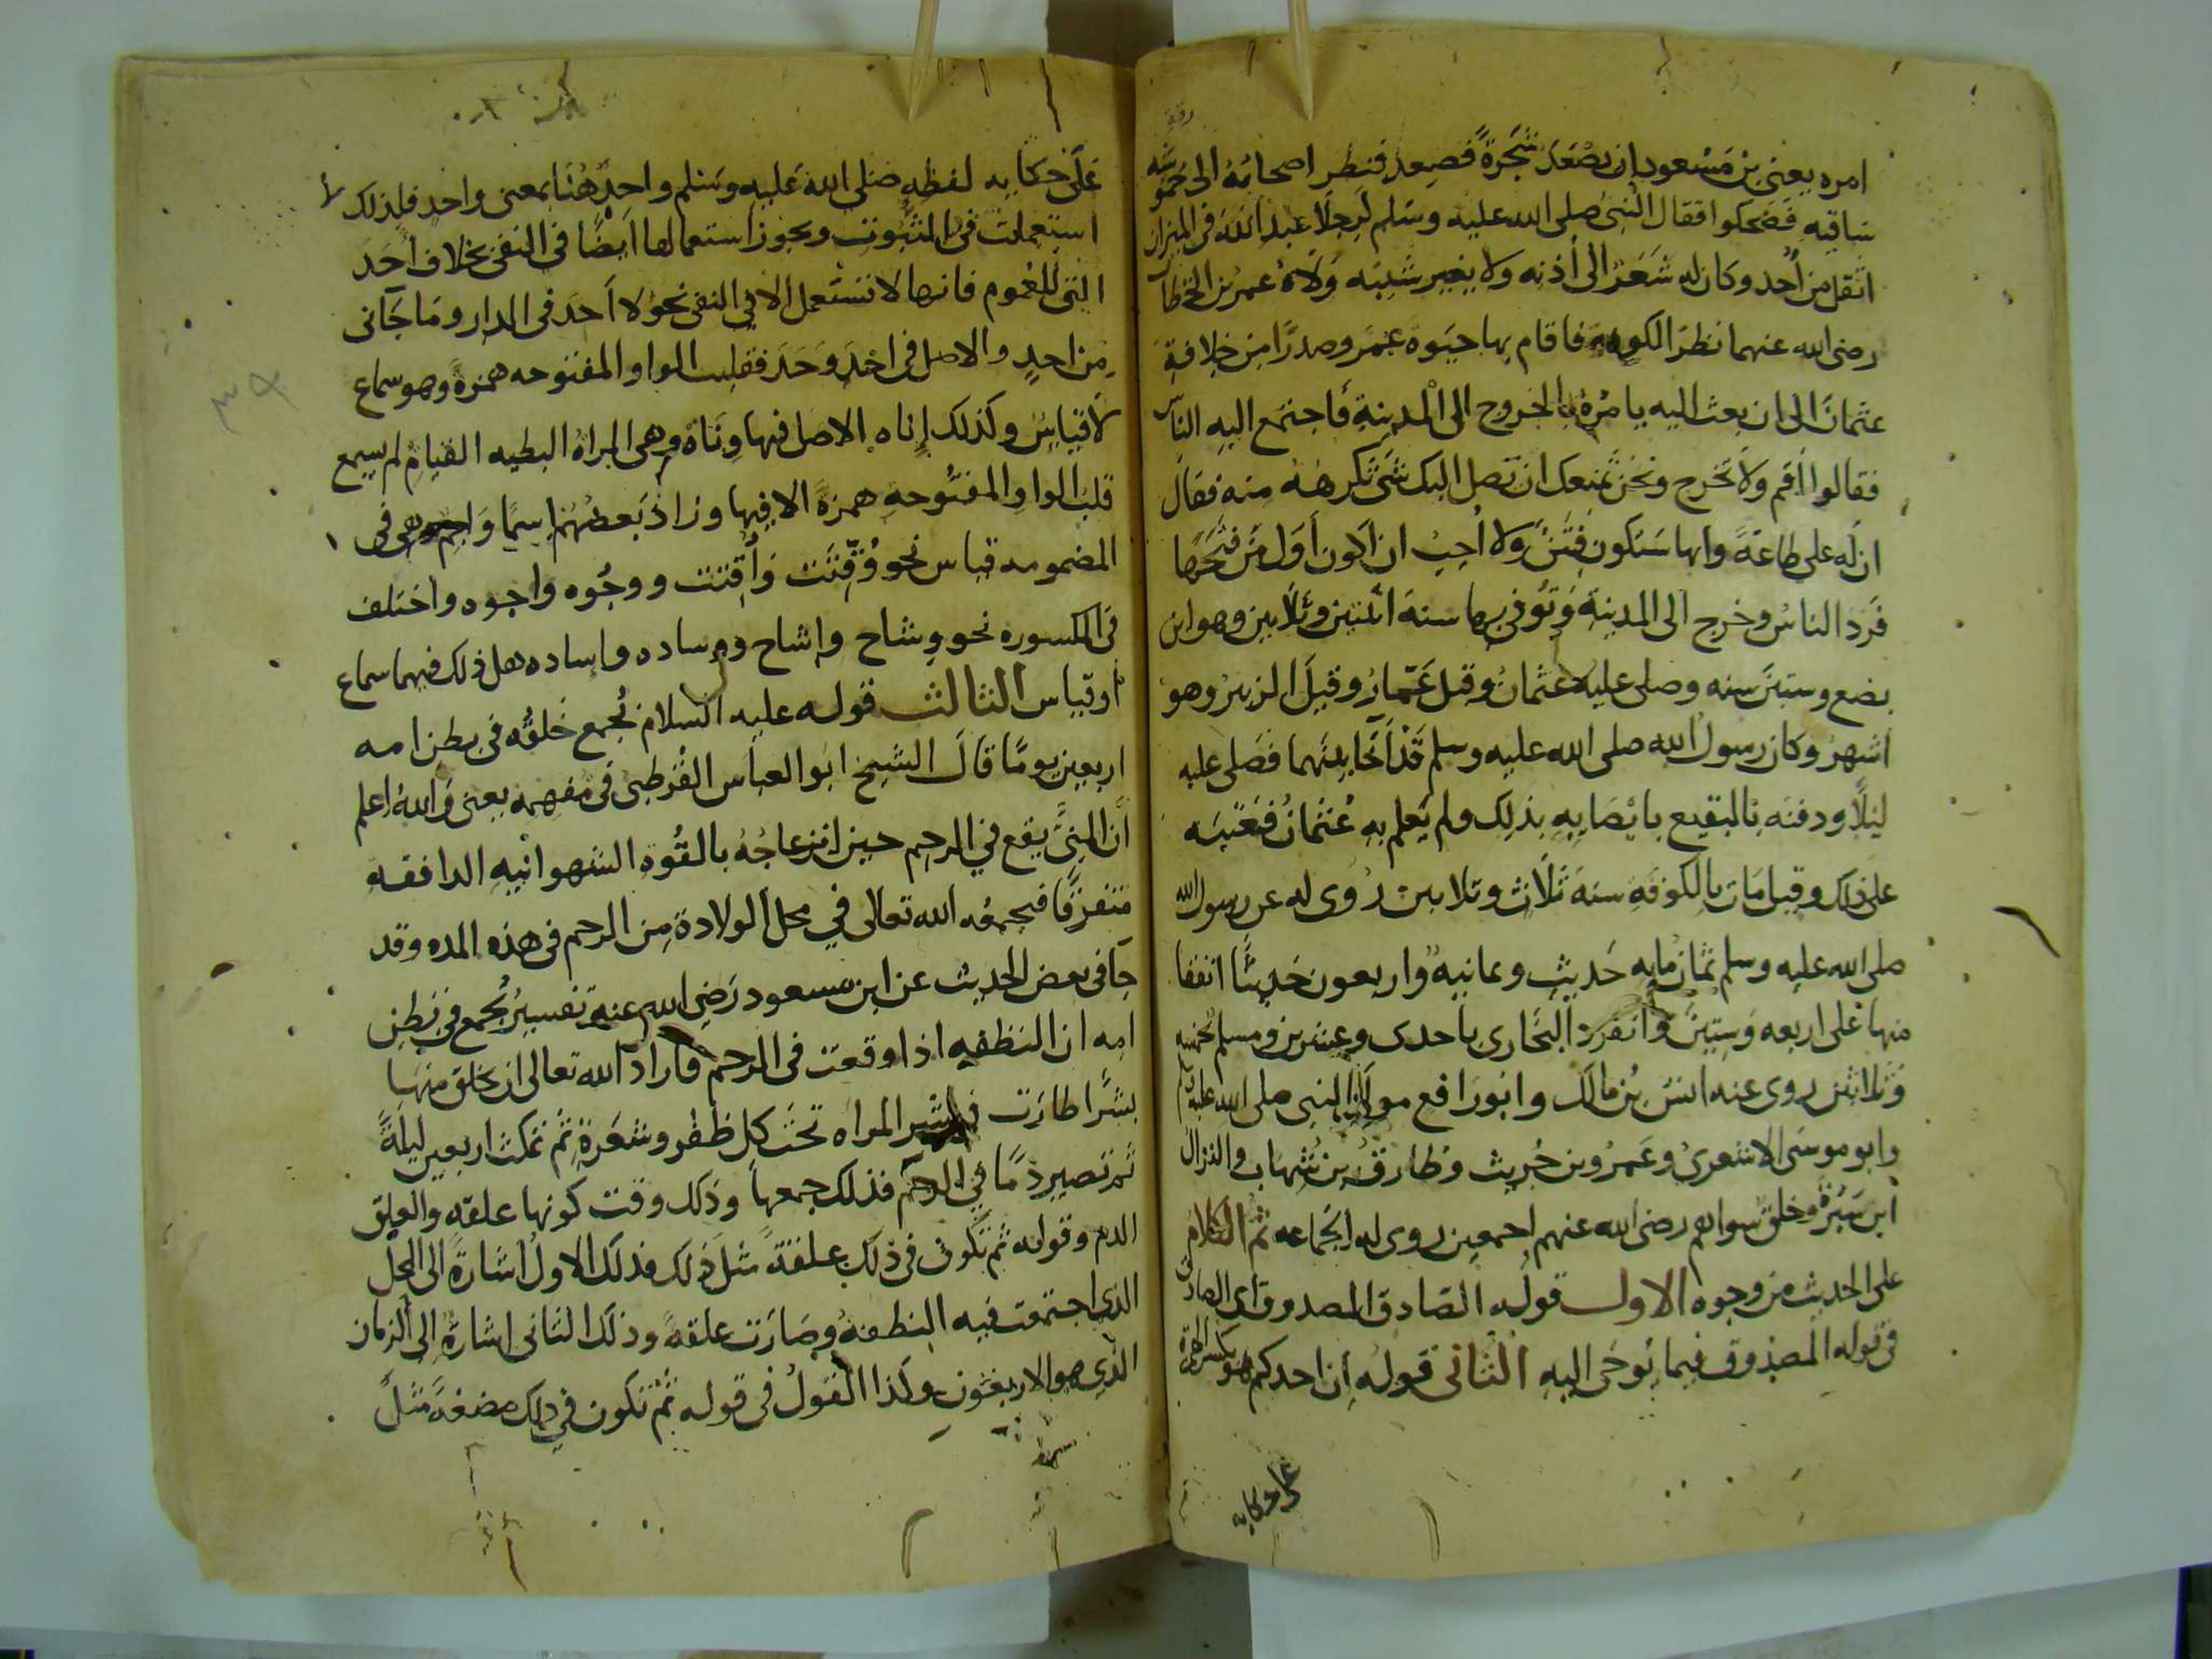 امره يعنى بن مسعود ان يصعد شجرة فصعد فنظر اصحابه الى حموشه
ساقيه فضحكوا فقال النبى صلى الله عليه وسلم لرجلا عبد الله فى الميزان
اثقل من أحد وكان له شعر الى أذنه ولا يغير شيبه ولاه عمر بن الخطاب
رضى الله عنهما نظر الكوفة فاقام بها حيوة عمر وصدرًا من خلافة
عثمان الى ان بعث اليه يامره بالخروج الى المدينة فاجتمع اليه الناس
فقالوا أقم ولا تخرج ونحن نمنعك ان تصل اليك شى تكرهه منه فقال
ان له على طاعة وانها ستكون فتن ولا أحب ان أكون أول من فتحها
فرد الناس وخرج الى المدينة وتوفى بها سنة اثنتين وثلاثين وهو ابن
بضع وستين سنه وصلى عليه عثمان وقيل عمار وقيل الزبير وهو
أشهر وكان رسول الله صلى الله عليه وسلم قد آخا بينهما فصلى عليه
ليلًا ودفنه بالبقيع بايصايه بذلك ولم يعلم به عثمان فعتبه
على ذلك وقيل مات بالكوفة سنة ثلاث وثلاثين روى له عن رسول الله
صلى الله عليه وسلم ثمان مايه حديث وثمانيه واربعون حديثًا اتفقا
منها على اربعه وستين وانفرد البخارى باحدى وعشرين ومسلم بخمسه
وثلاثين روى عنه انس بن مالك وابو رافع مولى النبى صلى الله عليه وسلم
وابو موسى الاشعرى وعمرو بن حريث وطارق بن شهاب والنزال
ابن سبرة وخلق سواهم رضى الله عنهم اجمعين روى له الجماعه ثم الكلام
على الحديث من وجوه الاول قوله الصادق المصدوق اى الصادق
فى قوله المصدوق فيما يوحى اليه الثانى قوله ان احدكم هو بكسر الهمزة
على حكايه
على حكايه لفظه صلى الله عليه وسلم واحد هنا بمعنى واحد فلذلك لا
استعملت فى الثبوت ويجوز استعمالها ايضًا فى النفى بخلاف أحد
التى للعموم فانها لا تستعمل الا فى النفى نحو لا أحد فى الدار وما جآنى
من احد والاصل فى احد وحد فقلبت الواو المفتوحه همزة وهو سماع
لا قياس وكذلك إناه الاصل فيها وناة وهى المراة البطيه القيام لم يسمع
قلب الواو المفتوحه همزة الا فيها وزاد بعضهم اسما واجم وهى فى
المضمومه قياس نحو وقتت وأقتت ووجوه واجوه واختلف
فى المكسوره نحو وشاح واشاح ووساده واساده هل ذلك فيهما سماع
او قياس الثالث قوله عليه السلام يجمع خلقه فى بطن امه
اربعين يومًا قال الشيخ ابو العباس القرطبى فى مفهمه يعنى والله اعلم
أن المنى يقع فى الرحم حين انزعاجه بالقوه الشهوانيه الدافقه
متفرقا فيجمعه الله تعالى فى محل الولادة من الرحم فى هذه المده وقد
جآ فى بعض الحديث عن ابن مسعود رضى الله عنه تفسير يجمع فى بطن
امه ان النطفه اذا وقعت فى الرحم فاراد الله تعالى ان يخلق منها
بشرًا طارت فى بشر المراه تحت كل ظفر وشعرة ثم تمكث اربعين ليلةً
ثم تصير دمًا فى الرحم فذلك جمعها وذلك وقت كونها علقه والعلق
الدم وقوله ثم تكون فى ذلك علقة مثل ذلك فذلك الاول اشارة الى المحل
الذى اجتمعت فيه النطفة وصارت علقة وذلك الثانى اشارة الى الزمان
الذى هو الاربعون وكذا القول فى قوله ثم تكون فى ذلك مضغة مثل